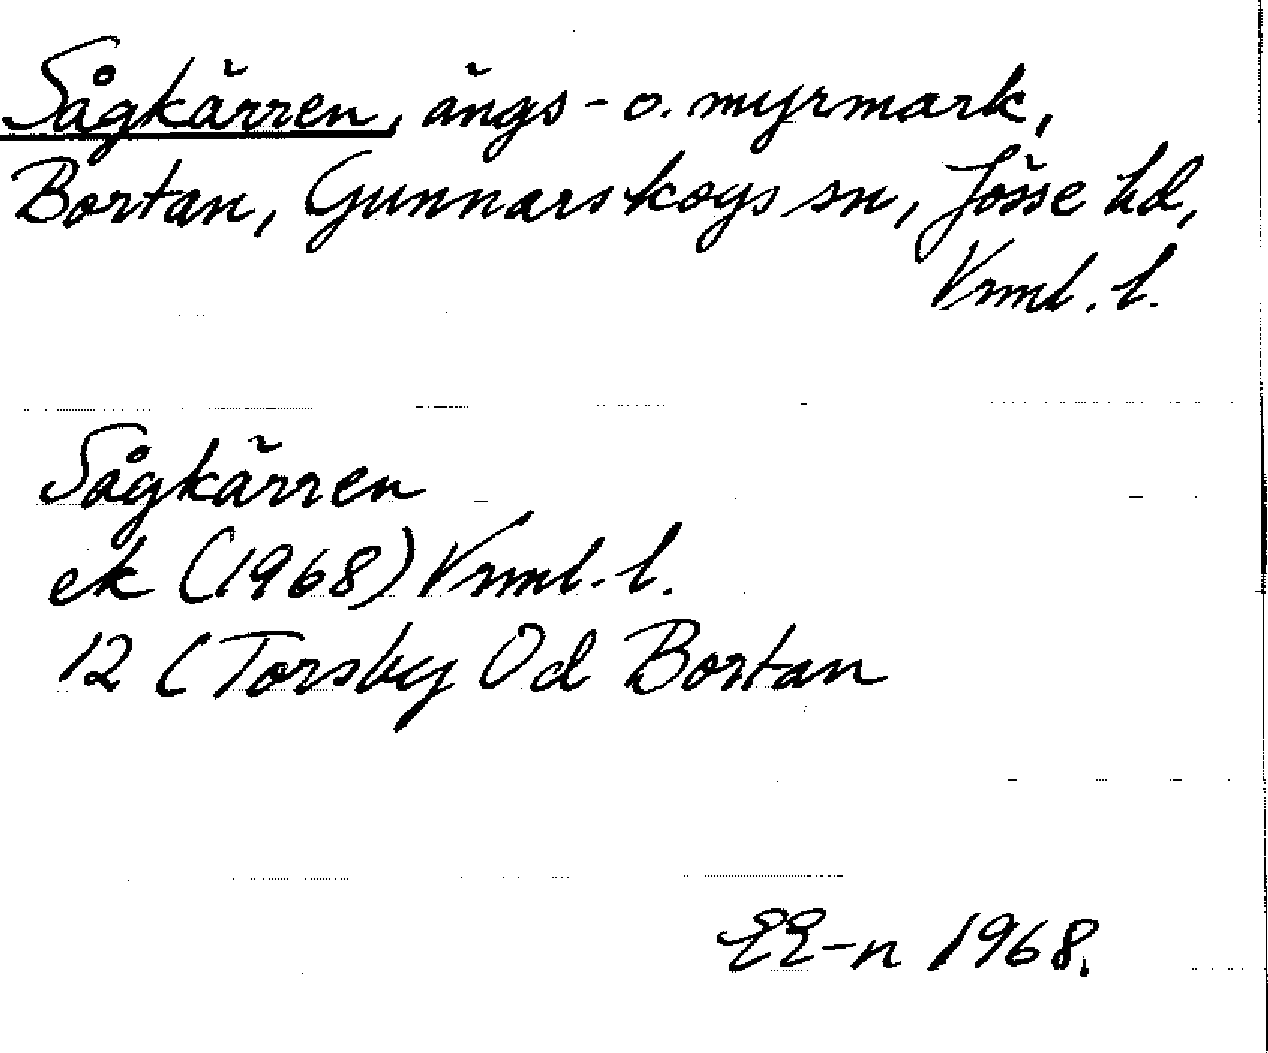 Sågkärren, ängs- o. myrmark,
Bortan, Gunnarskogs sn, Jösse hd,
Vrml. l.
Sågkärren
ek (1968) Vrml. l.
12 C Torsby 0d Bortan
EE-n 1968.